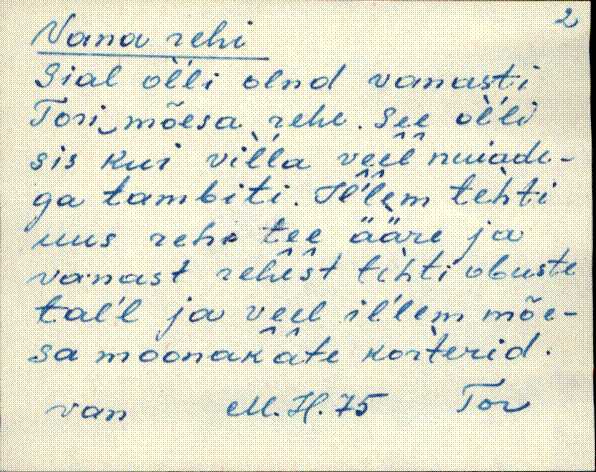 2
Vana rehi
Sial ol̀li olnd vanasti
Tori mõesa rehe. See ol̀li
sis kui vil̀la veel nuiade-
ga tambiti. Il̀lem tehti
uus rehi tee ääre ja
vanast rehest tehti obuste
tal̀l ja veel il̀lem mõe-
sa moonakate korterid.
van M.H.75 Tor